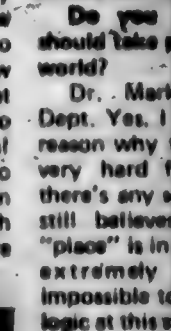 Do you
should take
world?
Dr. Mark
Dept. Yes. I
reason why
very hard
there's any
still believes
"place" is in
extremely
impossible to
logic at this